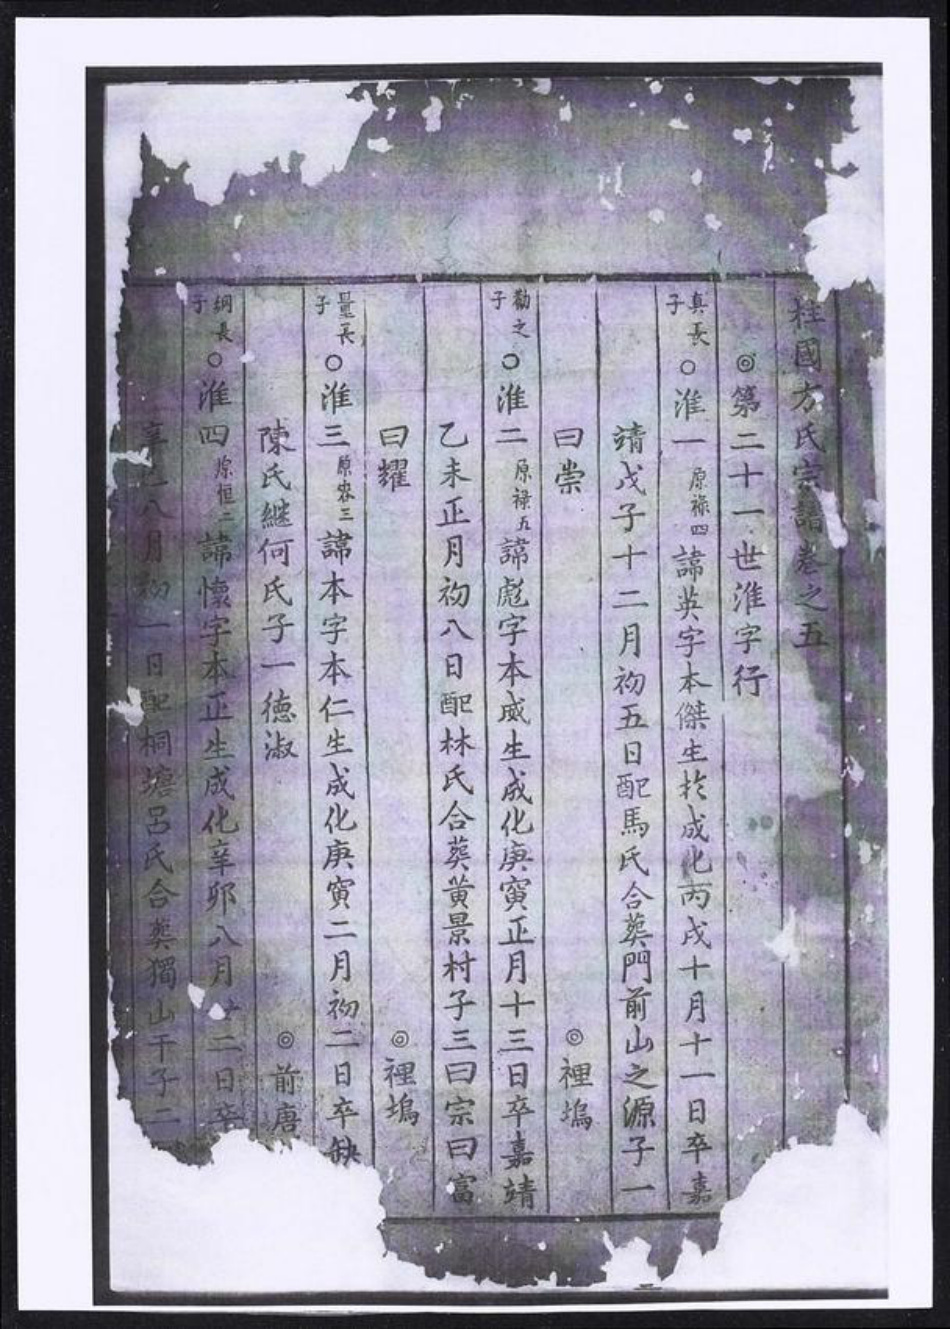 柱國方氏宗譜卷之五
◎第二十一世淮字行
真長子○淮一原祿四諱英字本傑生於成化丙戌十月十一日卒嘉
靖戊子十二月初五日配馬氏合葬門前山之源子一
曰崇 ◎裡塢
勸之子○淮二原祿五諱彪字本威生成化庚寅正月十三日卒嘉靖
乙未正月初八日配林氏合葬黃景村子三曰宗曰富
曰耀 ◎裡塢
量長子○淮三原农三諱本字本仁生成化庚寅二月初二日卒缺
陳氏繼何氏子一德淑 ◎前唐
綱長子○淮四原恒二諱懷字本正生成化辛卯八月廿二日卒
八月初一日配桐塘呂氏合葬獨山干子二